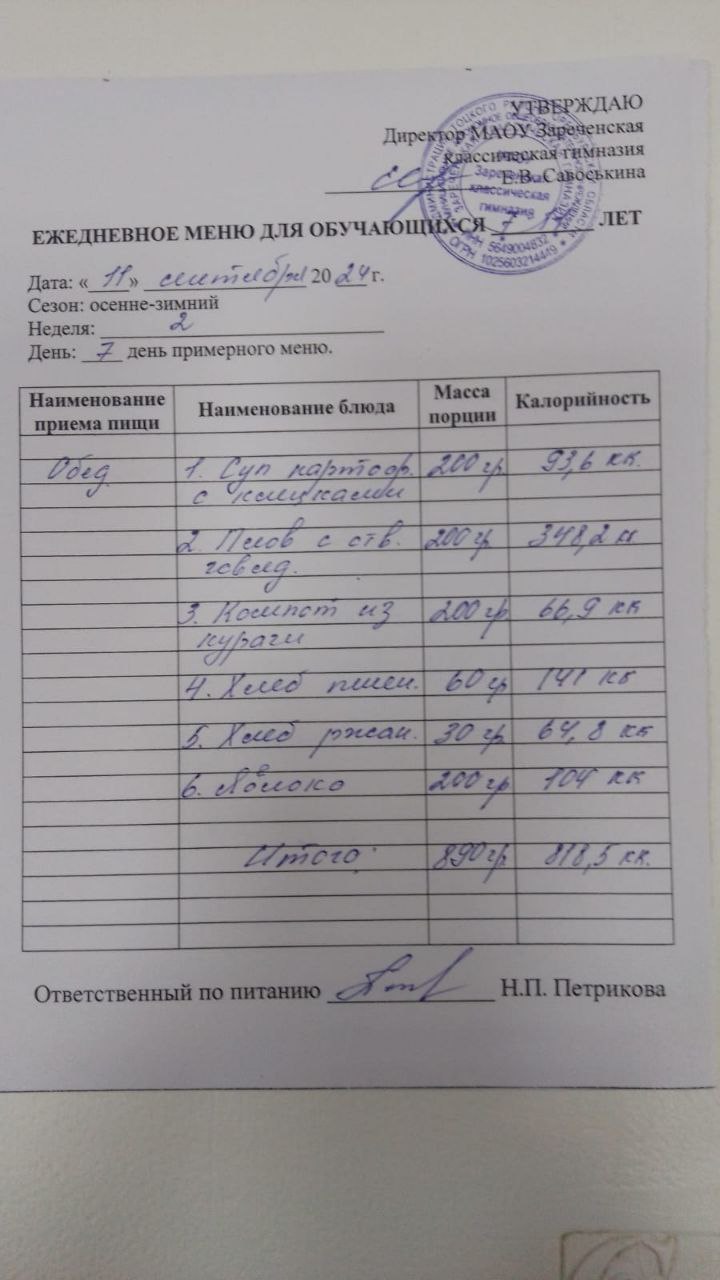 УТВЕРЖДАЮ
Директор МАОУ Зареченская
классическая гимназия
Е.В. Савоськина
Зареченская
классическая
гимназия
ИНН 5649004832
ОГРН 1025603214419
ЕЖЕДНЕВНОЕ МЕНЮ ДЛЯ ОБУЧАЮЩИХСЯ 7 ЛЕТ
Дата: «11» сентября 2024 г.
Сезон: осенне-зимний
Неделя: 2
День: 7 день примерного меню.
Наименование приема пищи Наименование блюда Масса порции Калорийность
Обед 1. Суп картоф. 200 гр 93,6 кк.
с клецками
2. Плов с отв. 200 гр 348,2 к
говяд.
3. Компот из 200 гр 66,9 кк
кураги
4. Хлеб пшен. 60 гр 141 кк
5. Хлеб ржан. 30 гр 64,8 кк
6. Яблоко 200 гр 104 кк
Итого: 890 гр 818,5 кк.
Ответственный по питанию Н.П. Петрикова